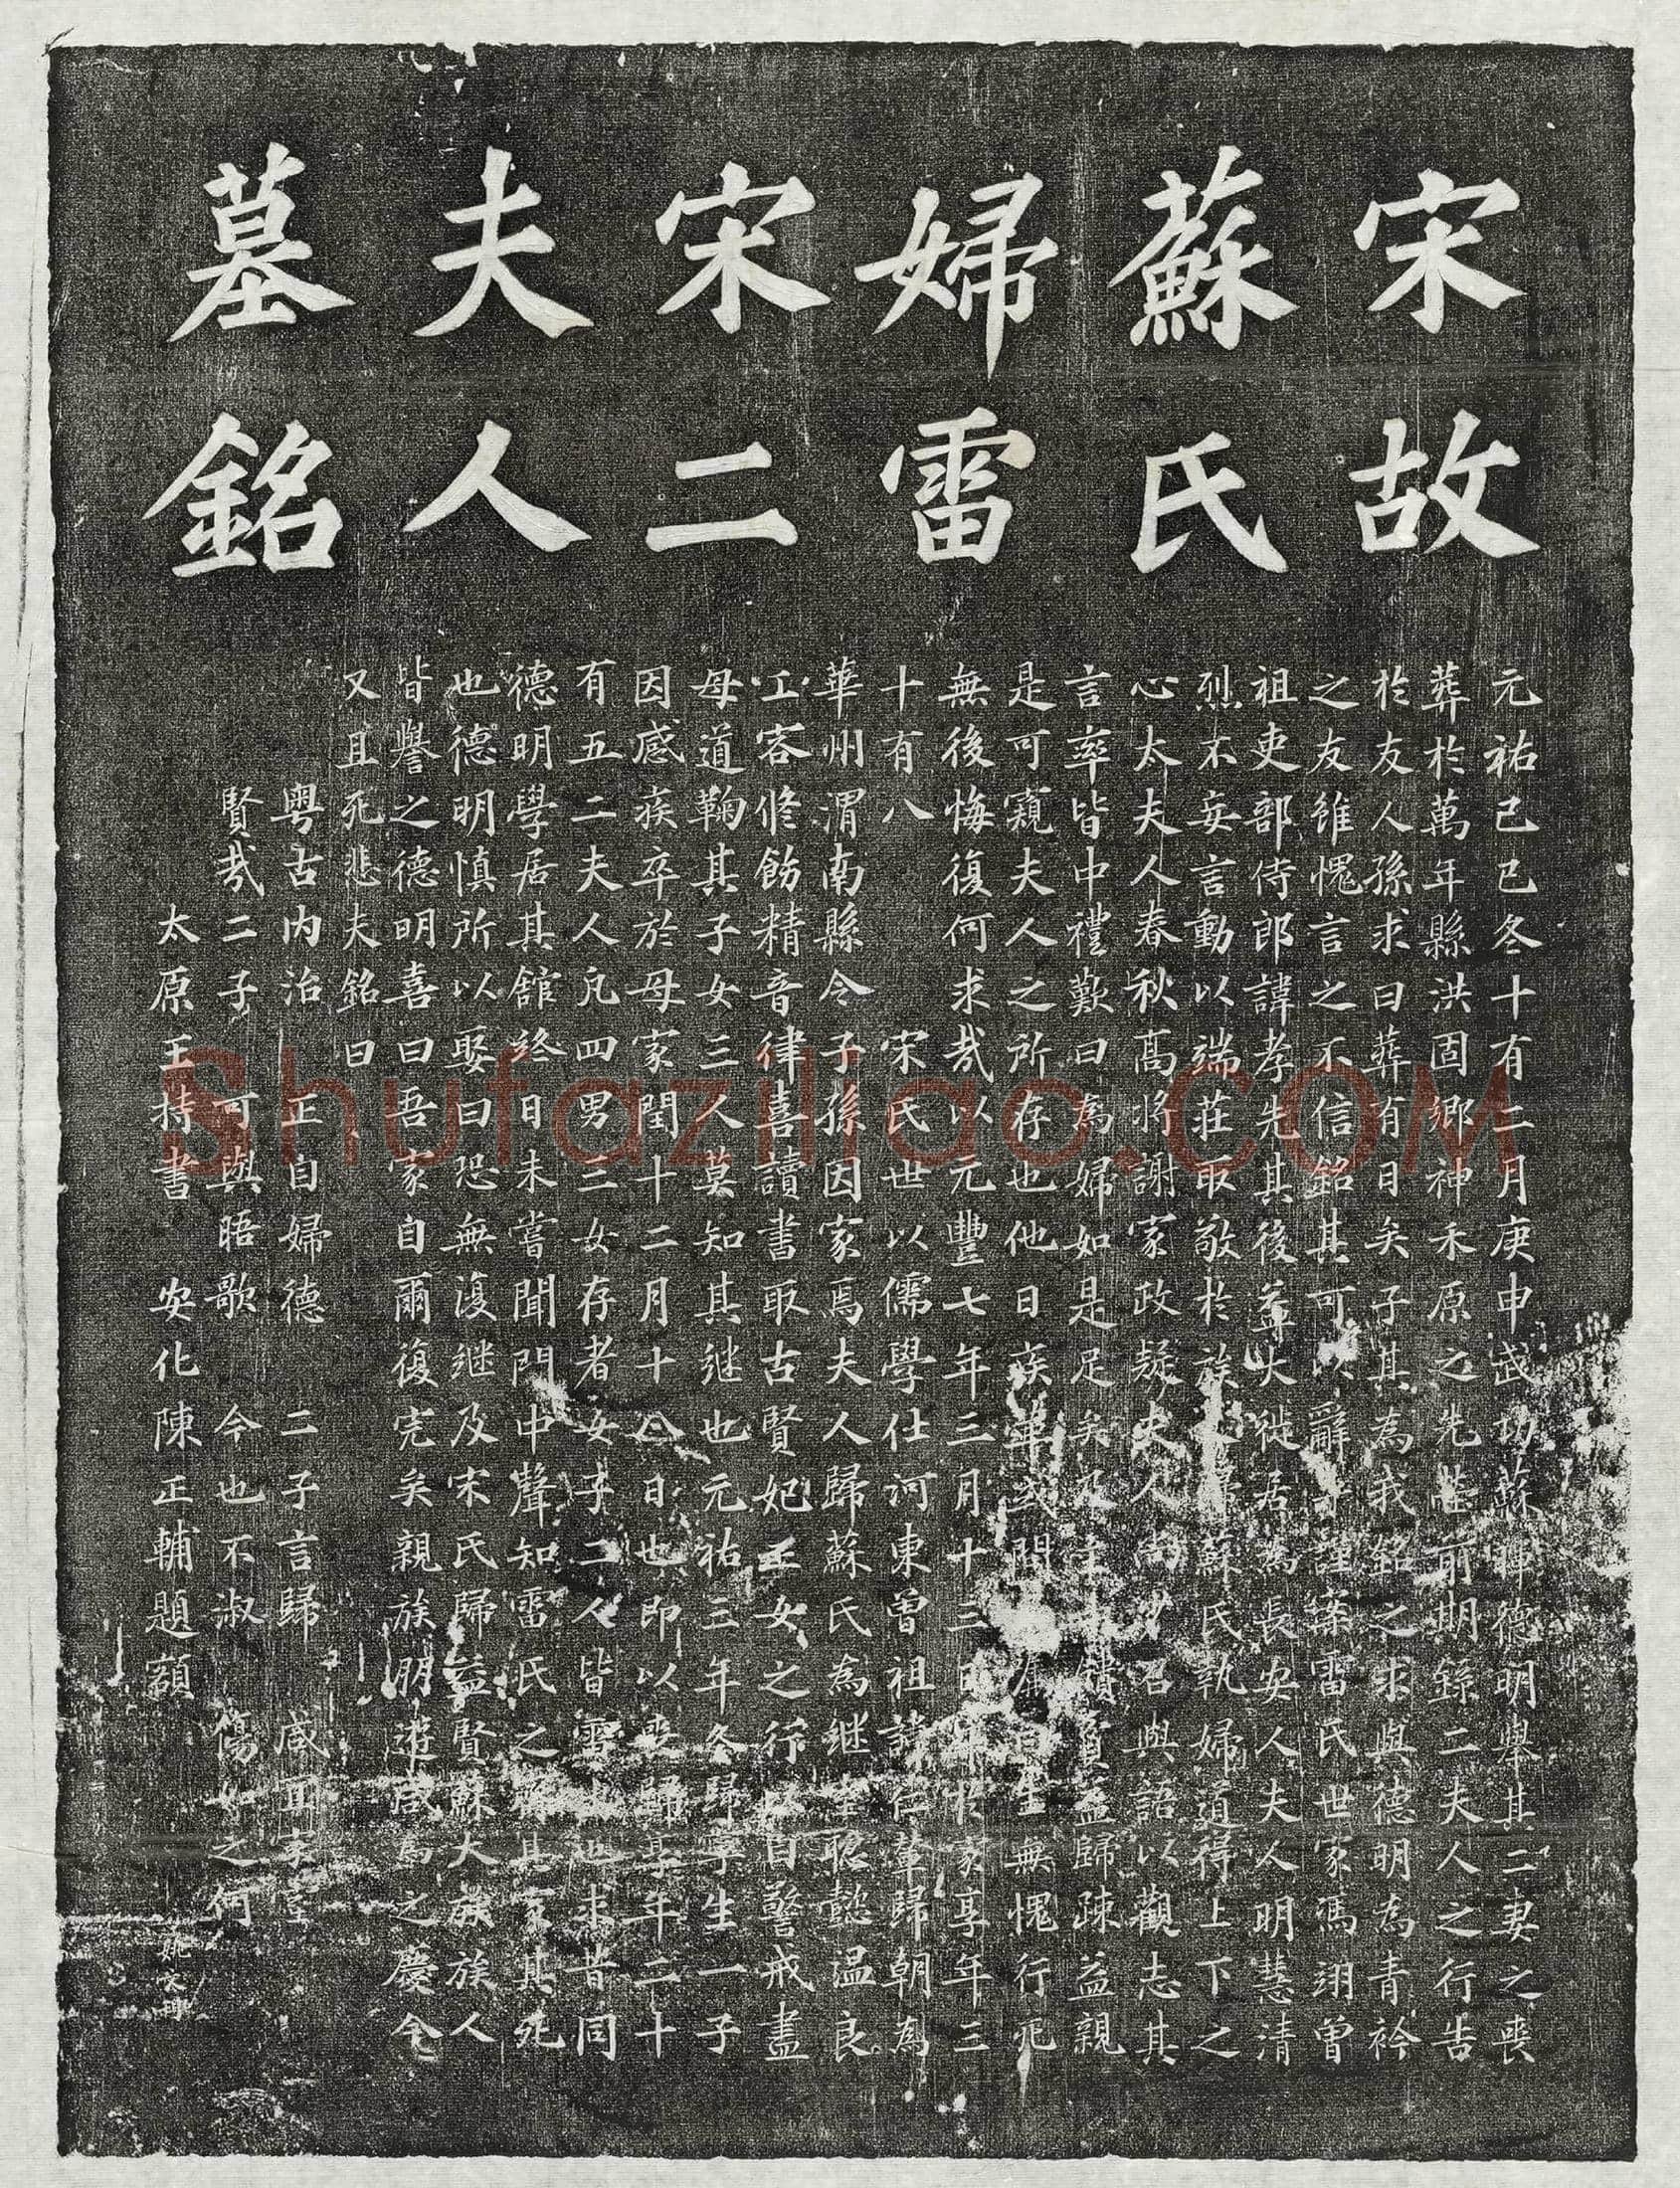 宋故
蘇氏
婦雷
宋二
夫人
墓銘
元祐己巳冬十有二月庚申武功蘇德明舉其二妻之喪
葬於萬年縣洪固鄉神禾原之先塋前期錄二夫人之行告
於友人孫求曰葬有日矣子其為我銘之求與德明為青衿
之友雖愧言之不信銘其可以辭乎謹案雷氏世家馮翊曾
祖吏部侍郎諱孝先其後益大徙居為長安人夫人明慧清
烈不妄言動以端莊取敬於族蘇氏執婦道得上下之
心太夫人春秋高將謝家政疑夫人尚少召與語以觀志其
言率皆中禮歎曰為婦如是足矣貧益歸疎益親
是可窺夫人之所存也他日疾革或問生無愧行死
無後悔復何求哉以元豐七年三月十三日家享年三
十有八 宋氏世以儒學仕河東曾祖諱歸朝為
華州渭南縣令子孫因家焉夫人歸蘇氏為继室聰懿温良
工容修飭精音律喜讀書取古賢妃王女之行以自警戒盡
母道鞠其子女三人莫知其继也元祐三年冬歸寧生一子
因感疾卒於母家閏十二月十八日也即以喪歸享年二十
有五二夫人凡四男三女存者女子二人皆雷出也求昔同
德明學居其館終日未嘗聞門中聲知雷氏之且其死
也德明慎所以娶曰恐無復继及宋氏歸益賢蘇大族族人
皆譽之德明喜曰吾家自爾復完矣親族朋遊咸為之慶今
又且死悲夫銘曰
粤古内治 正自婦德 二子言歸 咸宜室
賢哉二子 可與晤歌 今也不淑 傷如之何
太原王持書 安化陳正輔題額
姚文
Shufaziliao.COM